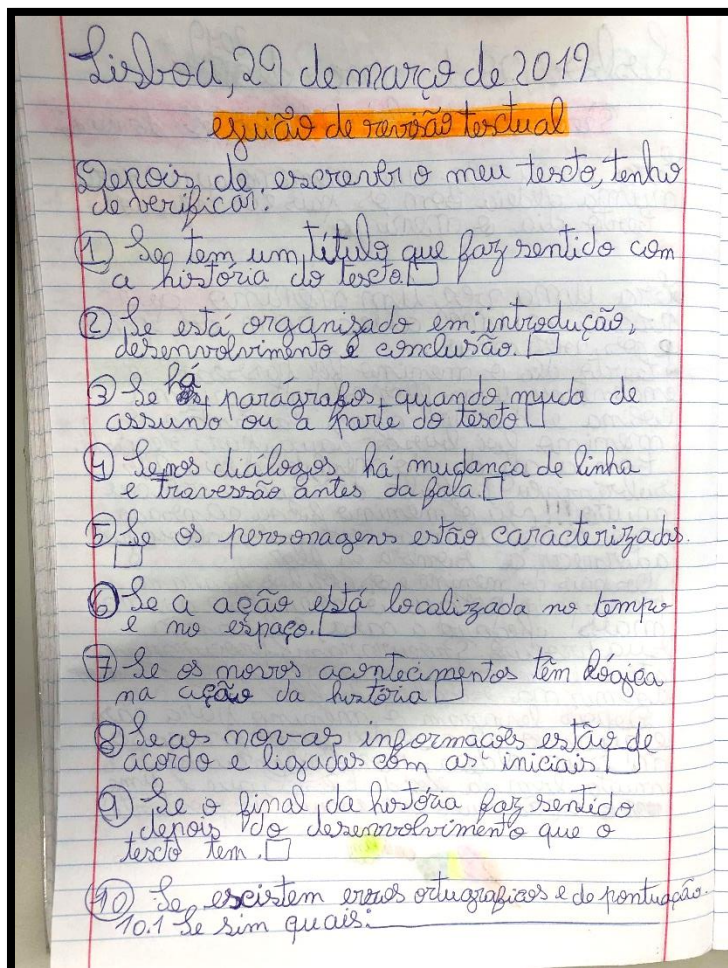 Lisboa, 29 de março de 2019
guião de revisão textual
Depois de escrever o meu texto, tenho
de verificar:
1 Se tem um título que faz sentido com
a história do texto. □
2 Se está organizado em: introdução,
desenvolvimento e conclusão. □
3 Se há parágrafos, quando muda de
assunto ou a parte do texto □
4 Se nos diálogos há mudança de linha
e travessão antes da fala. □
5 Se os personagens estão caracterizados.
□
6 Se a ação está localizada no tempo
e no espaço. □
7 Se os novos acontecimentos têm lógica
na ação da história □
8 Se as novas informações estão de
acordo e ligadas com as iniciais □
9 Se o final da história faz sentido
depois do desenvolvimento que o
texto tem. □
10 Se escistem erros ortugraficos e de pontuação.
10.1 Se sim quais: